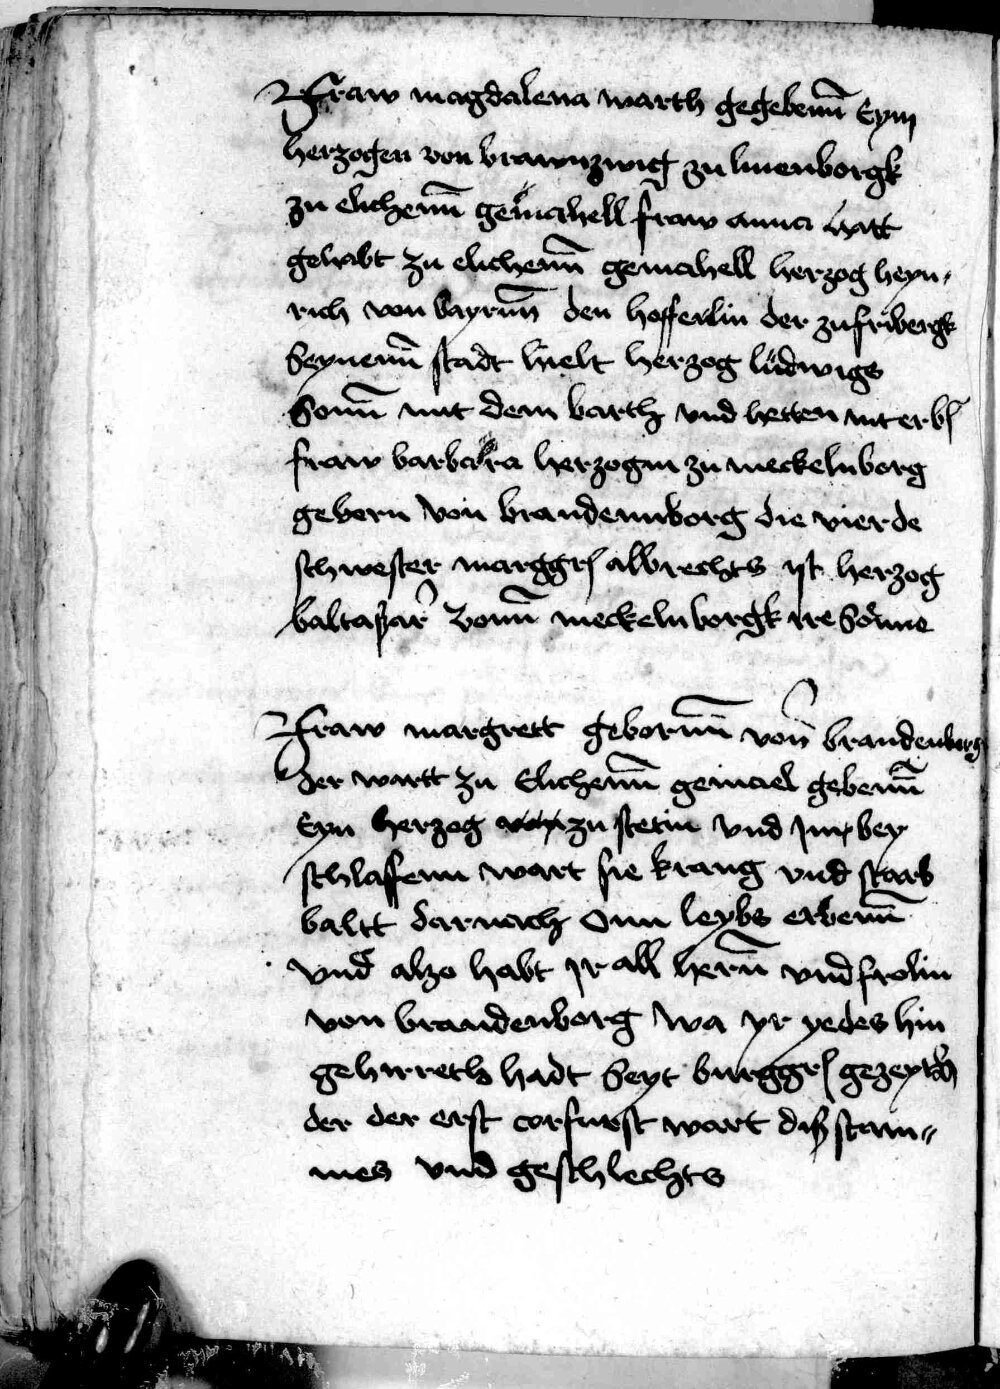 Fraw magdalena warth gegebenn Eym
herzogen von brawnzwig zu lunenborgk
zu elichenn gemahell fraw anna hatt
gehabt zu elichenn gemahell herzog heyn„
rich von bayrnn den hofferlin der zu friberg
Seynenn stadt hielt herzog ludwigs
Sonn mit dem barth und hetten nit erb
fraw barbara herzogin zu meckelnborg
geborn von brandennborg die vierde
schwester marggr albrechts ist herzog
baltasar vonn meckelnborgk ire Sonne
Fraw margrett gebornn von brandenberg
der wartt zu Elichenn gemael gebenn
Eyn herzog zu stetin vnd Im bey
schlaffenn wart sie krang vnd starb
baltt darnach Onn leybs erbenn
vnd alzo habt Ir all hernn vnd frolin
von brandenborg wa yr yedes hin
gehirreth hadt Seyt burggr
der der erst corfurst wart diß stam„
mes vnd geschlechts